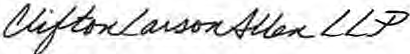 CliftonLarsonAllen LLP